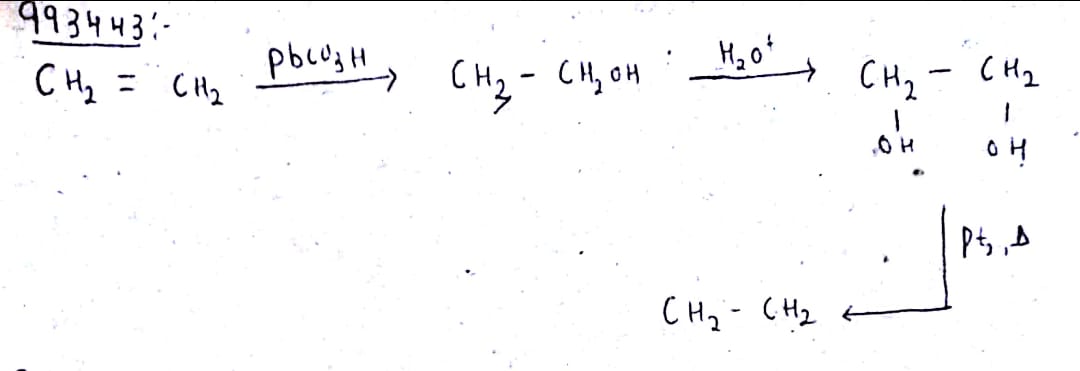 993443:-
CH₂ = CH₂ PbCO₃H → CH₂ - CH₂OH H₂O⁺ → CH₂ - CH₂
OH OH
Pt, Δ
CH₂ - CH₂ ←